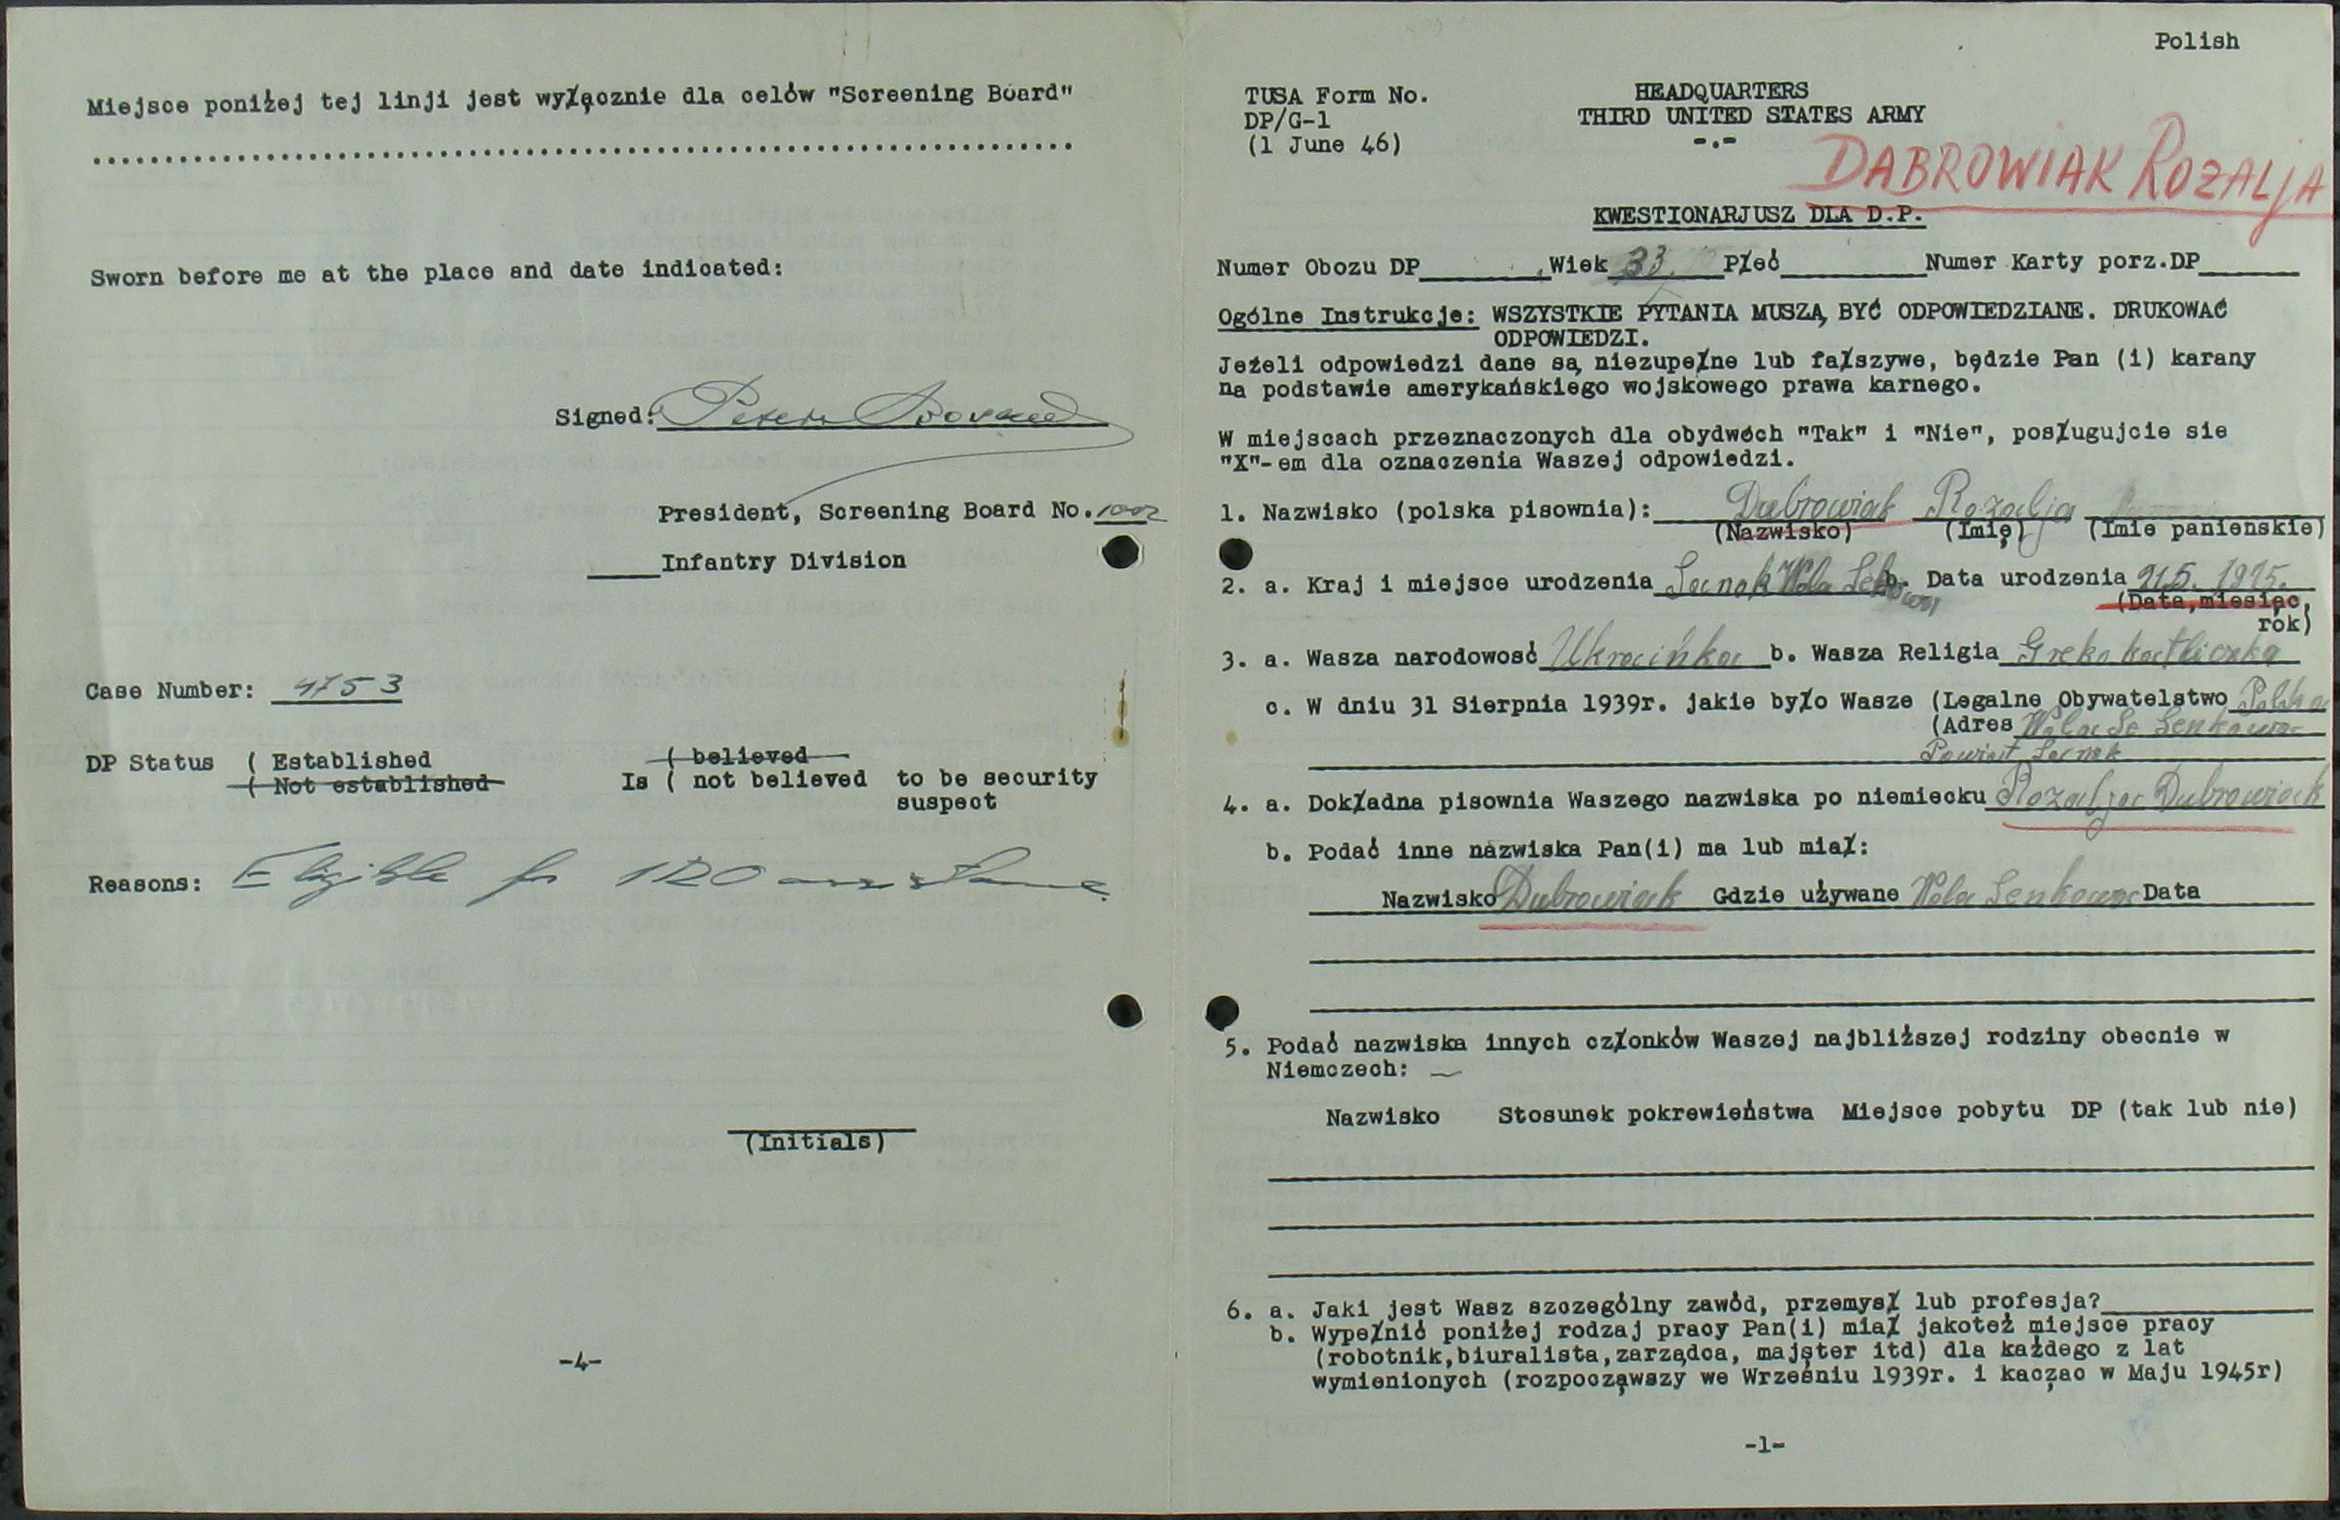 Miejsce poniżej tej linji jest wyłącznie dla celów "Screening Board"
Sworn before me at the place and date indicated:
Signed:
President, Screening Board No. 1002
Infantry Division
Case Number: 4753
DP Status ( Established
( Not established
( believed
Is ( not believed to be security
suspect
Reasons: Eligible for IRO assistance.
(Initials)
-4-
Polish
TUSA Form No.
DP/G-1
(1 June 46)
HEADQUARTERS
THIRD UNITED STATES ARMY
-.-
DABROWIAK ROZALJA
KWESTIONARJUSZ DLA D.P.
Numer Obozu DP Wiek 33. Płeć Numer Karty porz.DP
Ogólne Instrukcje: WSZYSTKIE PYTANIA MUSZĄ BYĆ ODPOWIEDZIANE. DRUKOWAĆ
ODPOWIEDZI.
Jeżeli odpowiedzi dane są niezupełne lub fałszywe, będzie Pan (i) karany
na podstawie amerykańskiego wojskowego prawa karnego.
W miejscach przeznaczonych dla obydwóch "Tak" i "Nie", posługujcie sie
"X"-em dla oznaczenia Waszej odpowiedzi.
1. Nazwisko (polska pisownia): Dubrowiak Rozalja
(Nazwisko) (Imię) (Imie panienskie)
2. a. Kraj i miejsce urodzenia Sanok Wola Sekowa b. Data urodzenia 21.5. 1915.
(Data,miesiąc,
rok)
3. a. Wasza narodowość Ukrainka b. Wasza Religia Greko katliczka
c. W dniu 31 Sierpnia 1939r. jakie było Wasze (Legalne Obywatelstwo Polska
(Adres Wola Se Senkowa
Powiat Sanok
4. a. Dokładna pisownia Waszego nazwiska po niemiecku Rozalja Dubrowiak
b. Podać inne nazwiska Pan(i) ma lub miał:
Nazwisko Dubrowiak Gdzie używane Wola Senkowa Data
5. Podać nazwiska innych członków Waszej najbliższej rodziny obecnie w
Niemczech: —
Nazwisko Stosunek pokrewieństwa Miejsce pobytu DP (tak lub nie)
6. a. Jaki jest Wasz szczególny zawód, przemysł lub profesja?
b. Wypełnić poniżej rodzaj pracy Pan(i) miał jakoteż miejsce pracy
(robotnik,biuralista,zarządca, majster itd) dla każdego z lat
wymienionych (rozpocząwszy we Wrześniu 1939r. i kacząc w Maju 1945r)
-1-